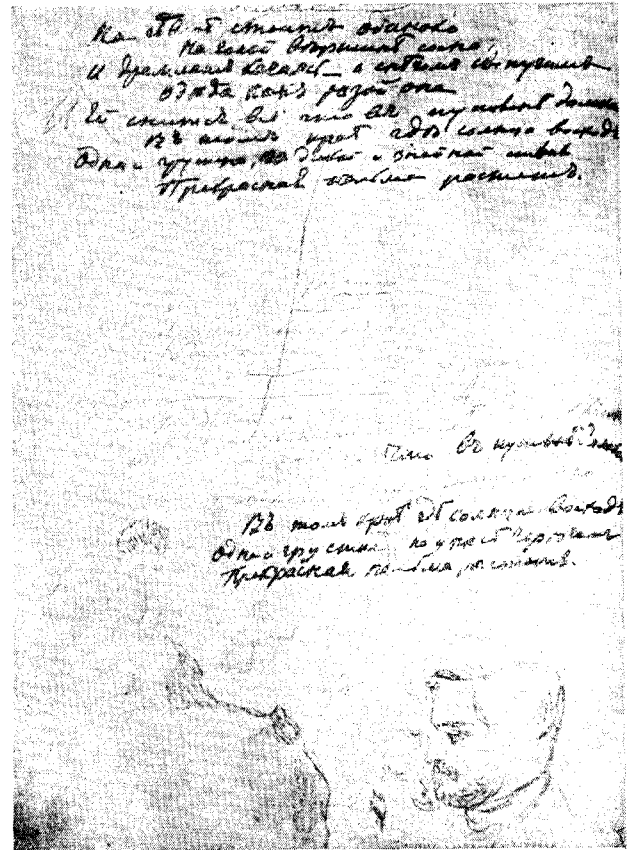 На стоитъ одиноко
На голой вершинѣ сосна,
И дремлетъ качаясь — и снѣгомъ сыпучимъ
Одѣта какъ ризой она
Ей снится все что въ пустынѣ
Въ томъ краѣ гдѣ солнца восходъ
Одна и грустна, на и знойной
Прекрасная пальма растетъ.
Что въ пустынѣ
Въ томъ краѣ гдѣ солнца восходъ
Одна и грустна на утесѣ горючемъ
Прекрасная пальма растетъ.